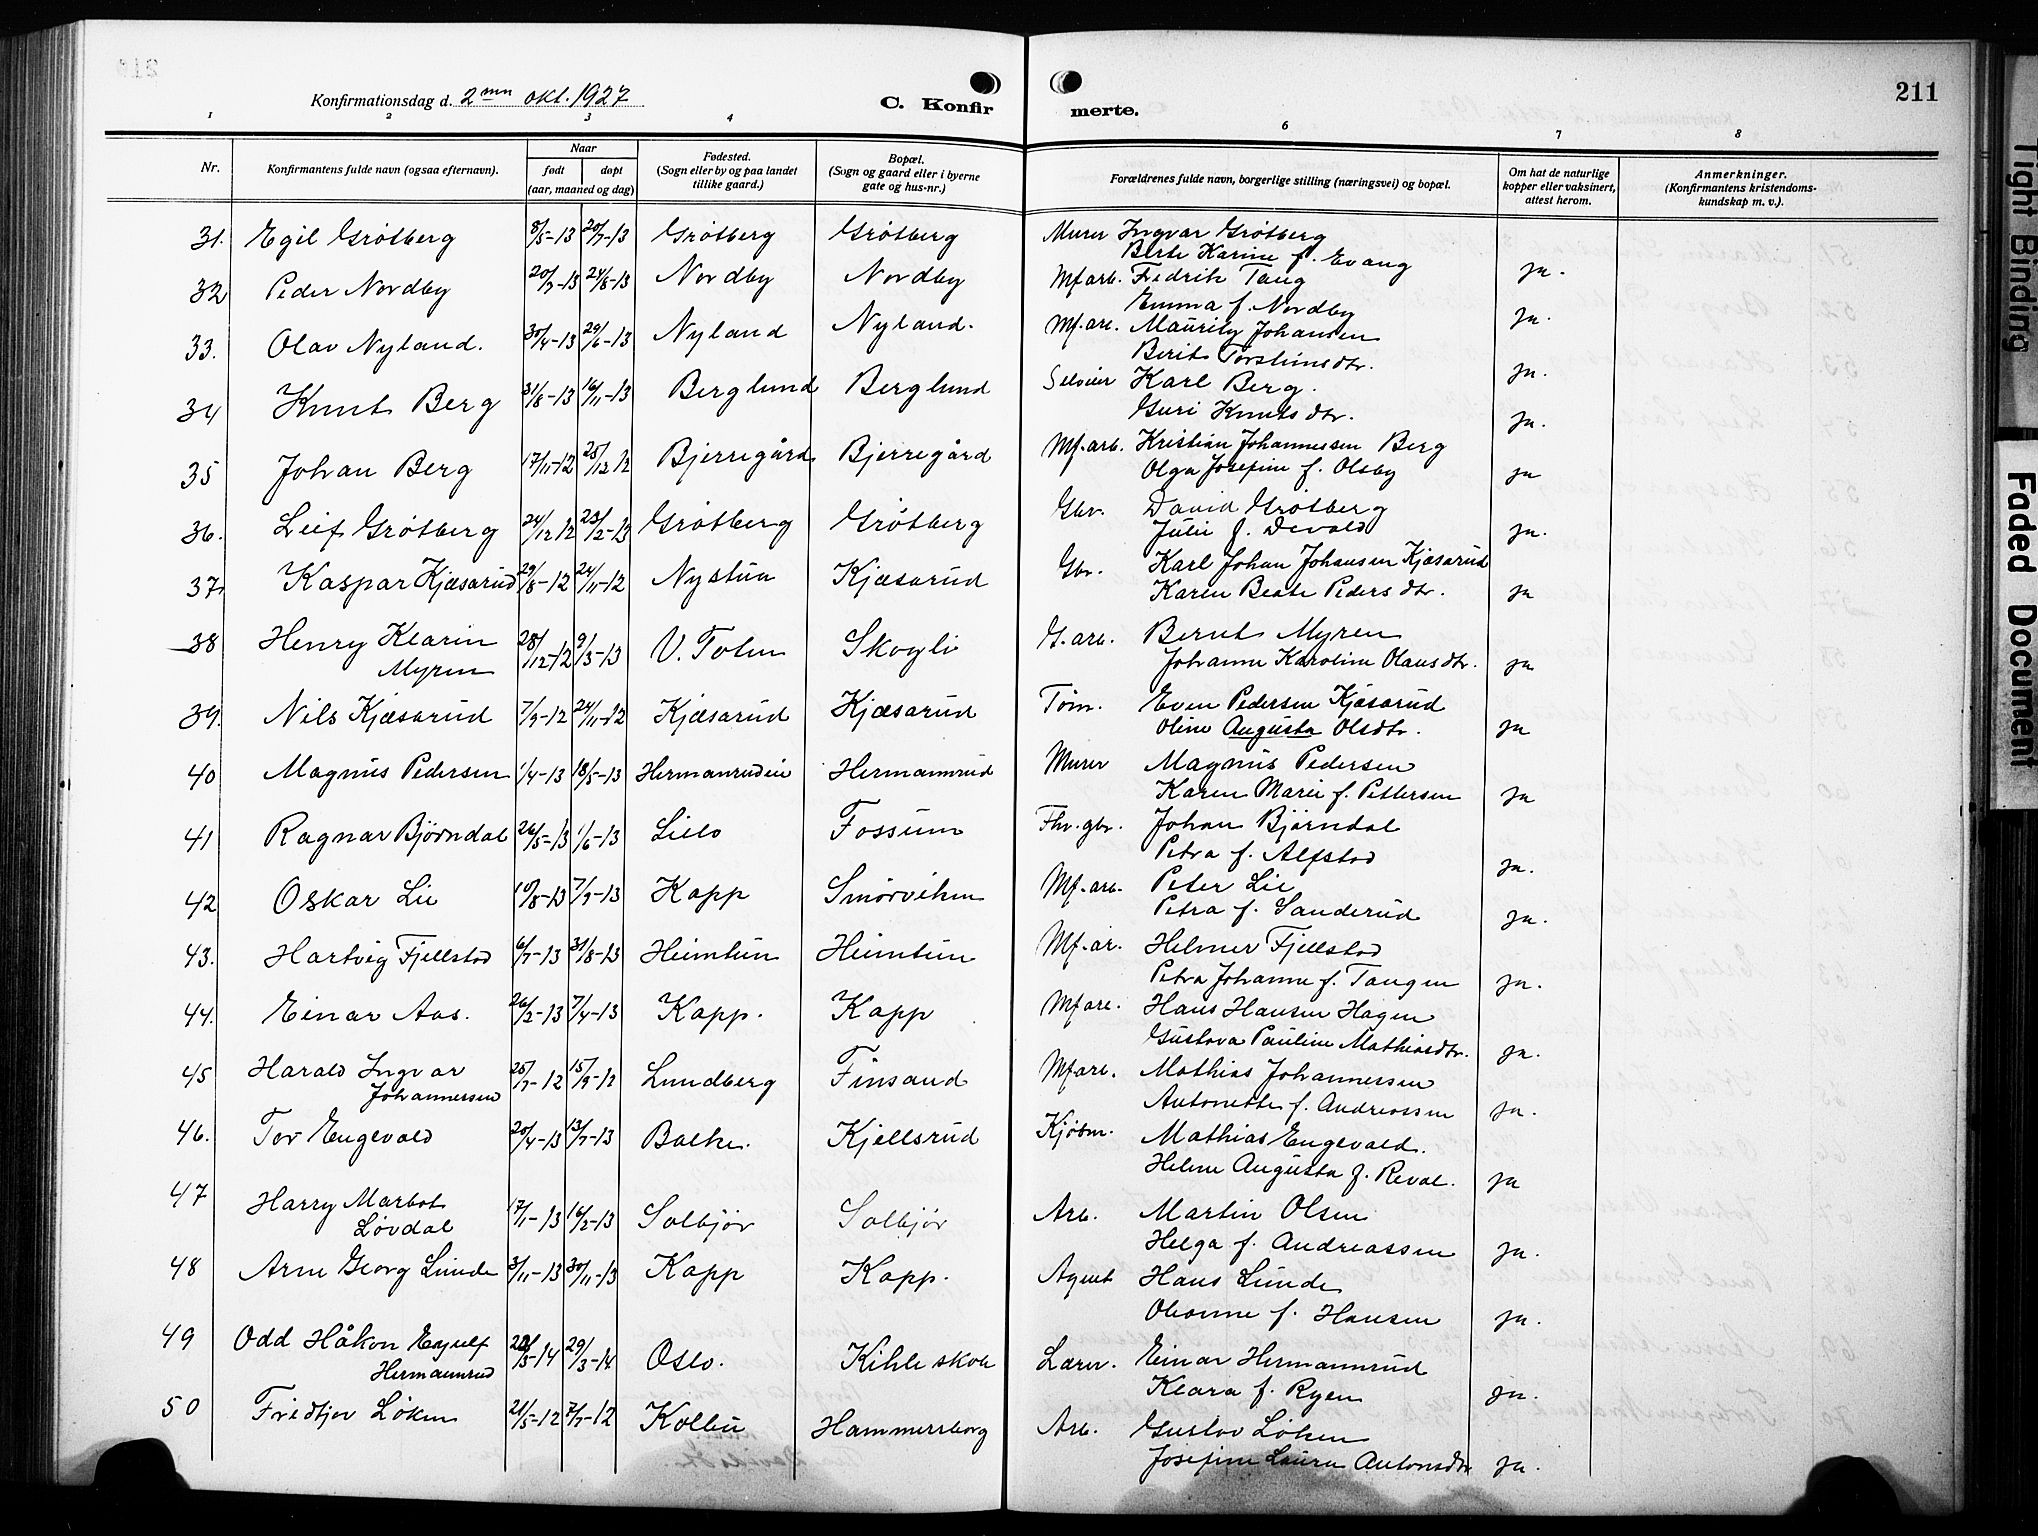 Konfirmationsdag d. 2mn okt. 1927
C. Konfirmerte.
211
1 2 3 4 6 7 8
Nr.
Konfirmantens fulde navn (ogsaa efternavn).
Naar
født døpt
(aar, maaned og dag)
Fødested.
(Sogn eller by og paa landet
tillike gaard.)
Bopæl.
(Sogn og gaard eller i byerne
gate og hus-nr.)
Forældrenes fulde navn, borgerlige stilling (næringsvei) og bopæl.
Om hat de naturlige
kopper eller vaksinert,
attest herom.
Anmerkninger.
(Konfirmantens kristendoms-
kundskap m. v.).
31. Egil Grötberg 8/5-13 20/7-13 Grötberg Grötberg Murer Ingvar Grötberg
Berte Karine f. Evang ja.
32 Peder Nordby 20/7-13 24/8-13 Nordby Nordby Mf arb. Fredrik Tang
Emma f. Nordby ja.
33. Olav Nyland. 30/4-13 29/6-13 Nyland Nyland. Mf. are. Mauritz Johansen
Berit Torsteinsdtr. ja.
34 Knut Berg 31/8-13 16/11-13 Berglund Berglund Selveier Karl Berg.
Guri Knutsdtr. ja.
35 Johan Berg 17/11-12 25/12 12 Bjerregård Bjerregård Mf. arb. Kristian Johannessen Berg
Olga Josefine f. Olsby ja
36. Leif Grötberg 24/12 12 23/2-13 Grötberg Grötberg Gbr. David Grötberg
Julie f. Devold ja.
37. Kaspar Kjæsarud 29/8-12 24/11-12 Nystua Kjæsarud Gbr. Karl Johan Johansen Kjæsarud
Karen Beate Pedersdtr. ja
38 Henry Klarin
Myren 28/12-12 9/3-13 V. Toten Skogli G. arb. Bernt Myren
Johanne Karoline Olausdtr. ja
39. Nils Kjæsarud 7/9-12 24/11-12 Kjæsarud Kjæsarud Tøm. Even Pedersen Kjæsarud
Oline Augusta Olsdtr. ja
40 Magnus Pedersen 1/4-13 18/5-13 Hermanrudeie Hermannrud Murer Magnus Pedersen
Karen Marie f. Pettersen ja
41 Ragnar Bjørndal 26/5-13 1/6-13 Lillo Fossum Fhv. gbr. Johan Bjørndal
Petra f. Alfstad ja.
42 Oskar Lie 10/8-13 7/9-13 Kapp Smörviken Mf. arb. Peter Lie
Petra f. Sanderud ja.
43. Hartvig Fjellstad 6/7-13 31/8-13 Heimtun Heimtun Mf. ar. Helmer Fjellstad
Petra Johanne f. Tangen ja.
44. Einar Aas. 26/2-13 7/4-13 Kapp. Kapp Mf are. Hans Hansen Hagen
Gustava Pauline Mathiasdtr. ja.
45 Harald Ingvar
Johannersen 25/7-12 15/9-12 Lundberg Finsand Mf arb. Mathias Johannersen
Antonette f. Andreassen ja.
46. Tor Engevald 20/4-13 13/7-13 Balke. Kjellsrud Kjöbm. Mathias Engevald.
Helene Augusta f. Reval. ja
47 Harry Marbot
Løvdal 17/1-13 16/2-13 Solbjör Solbjör Arb. Martin Olsen
Helga f. Andreassen ja.
48 Arne Georg Lunde 3/11-13 30/11-13 Kapp Kapp. Agent Hans Lunde
f. Hansen ja.
49 Odd Håkon Eyulf
Hermannrud /3-14 29/3-14 Oslo. Kihle skole Lærer. Einar Hermannrud
Klara f. Ryen ja.
50 Fridtjov Løken 21/5-12 7/7-12 Kolbu Hammersborg Arb. Gustav Løken
Josefine Laura Antonsdtr ja.
Tight Binding
Faded Document